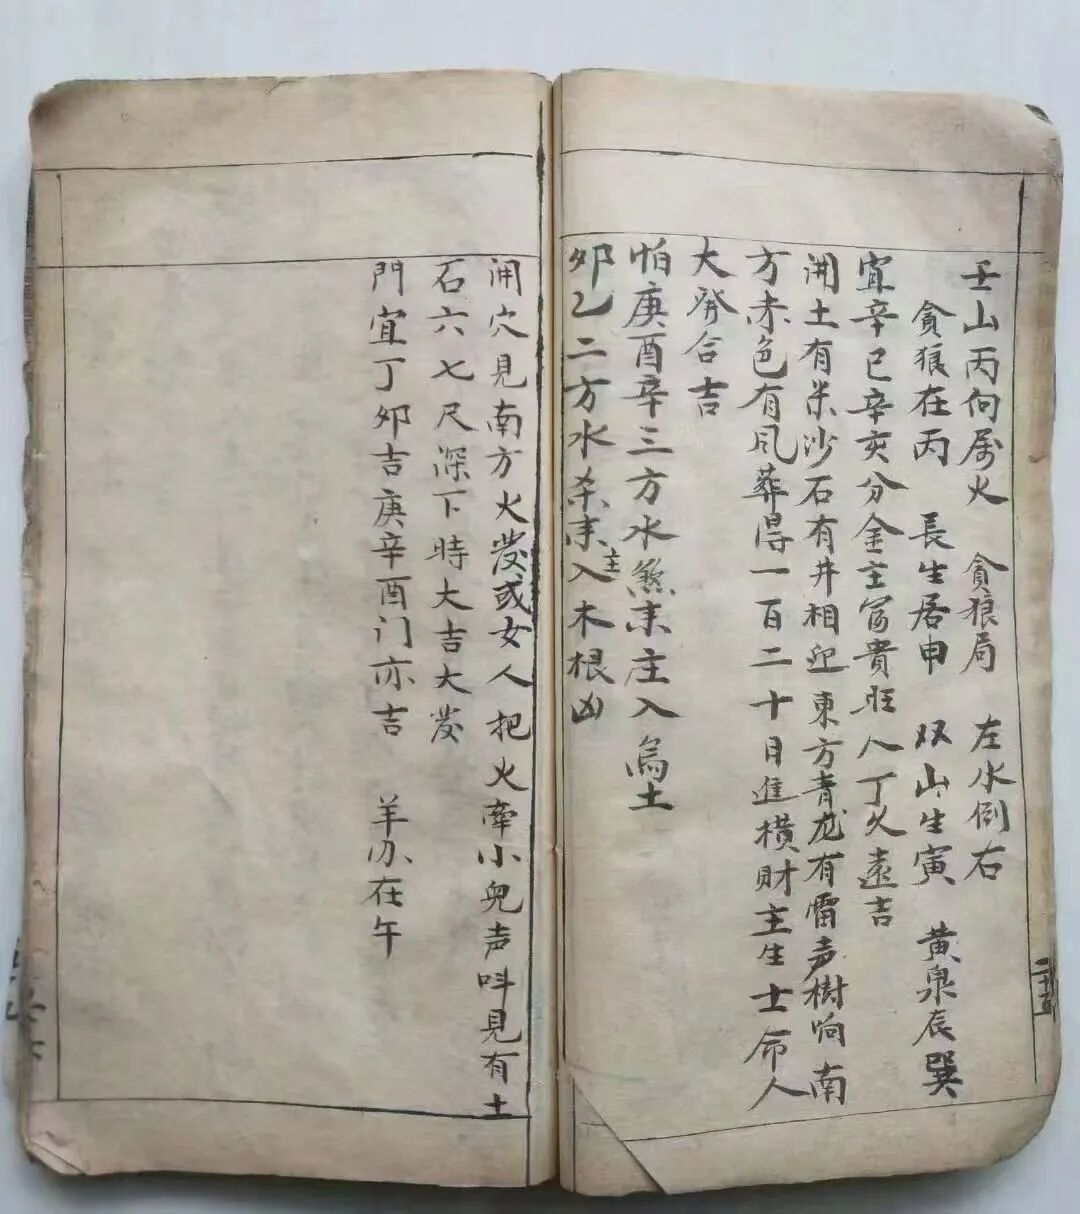 壬山丙向属火 貪狼局 左水倒右
貪狼在丙 長生居申 双山生寅 黄泉辰巽
宜辛巳辛亥分金主富貴旺人丁久遠吉
開土有米沙石有井相迎東方青龙有雷声樹响南
方赤色有风葬得一百二十日進横財主生士命人
大發合吉
怕庚酉辛三方水煞末庄入烏土
夘乙二方水杀末主入木根凶
開穴見南方火發或女人把火牽小兒声呌見有土
石六七尺深下時大吉大發
門宜丁夘吉庚辛酉门亦吉 羊刃在午